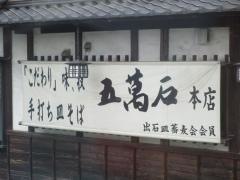 「こだわり」味、技
手打ち皿そば
五萬石 本店
出石皿蕎麦会会員